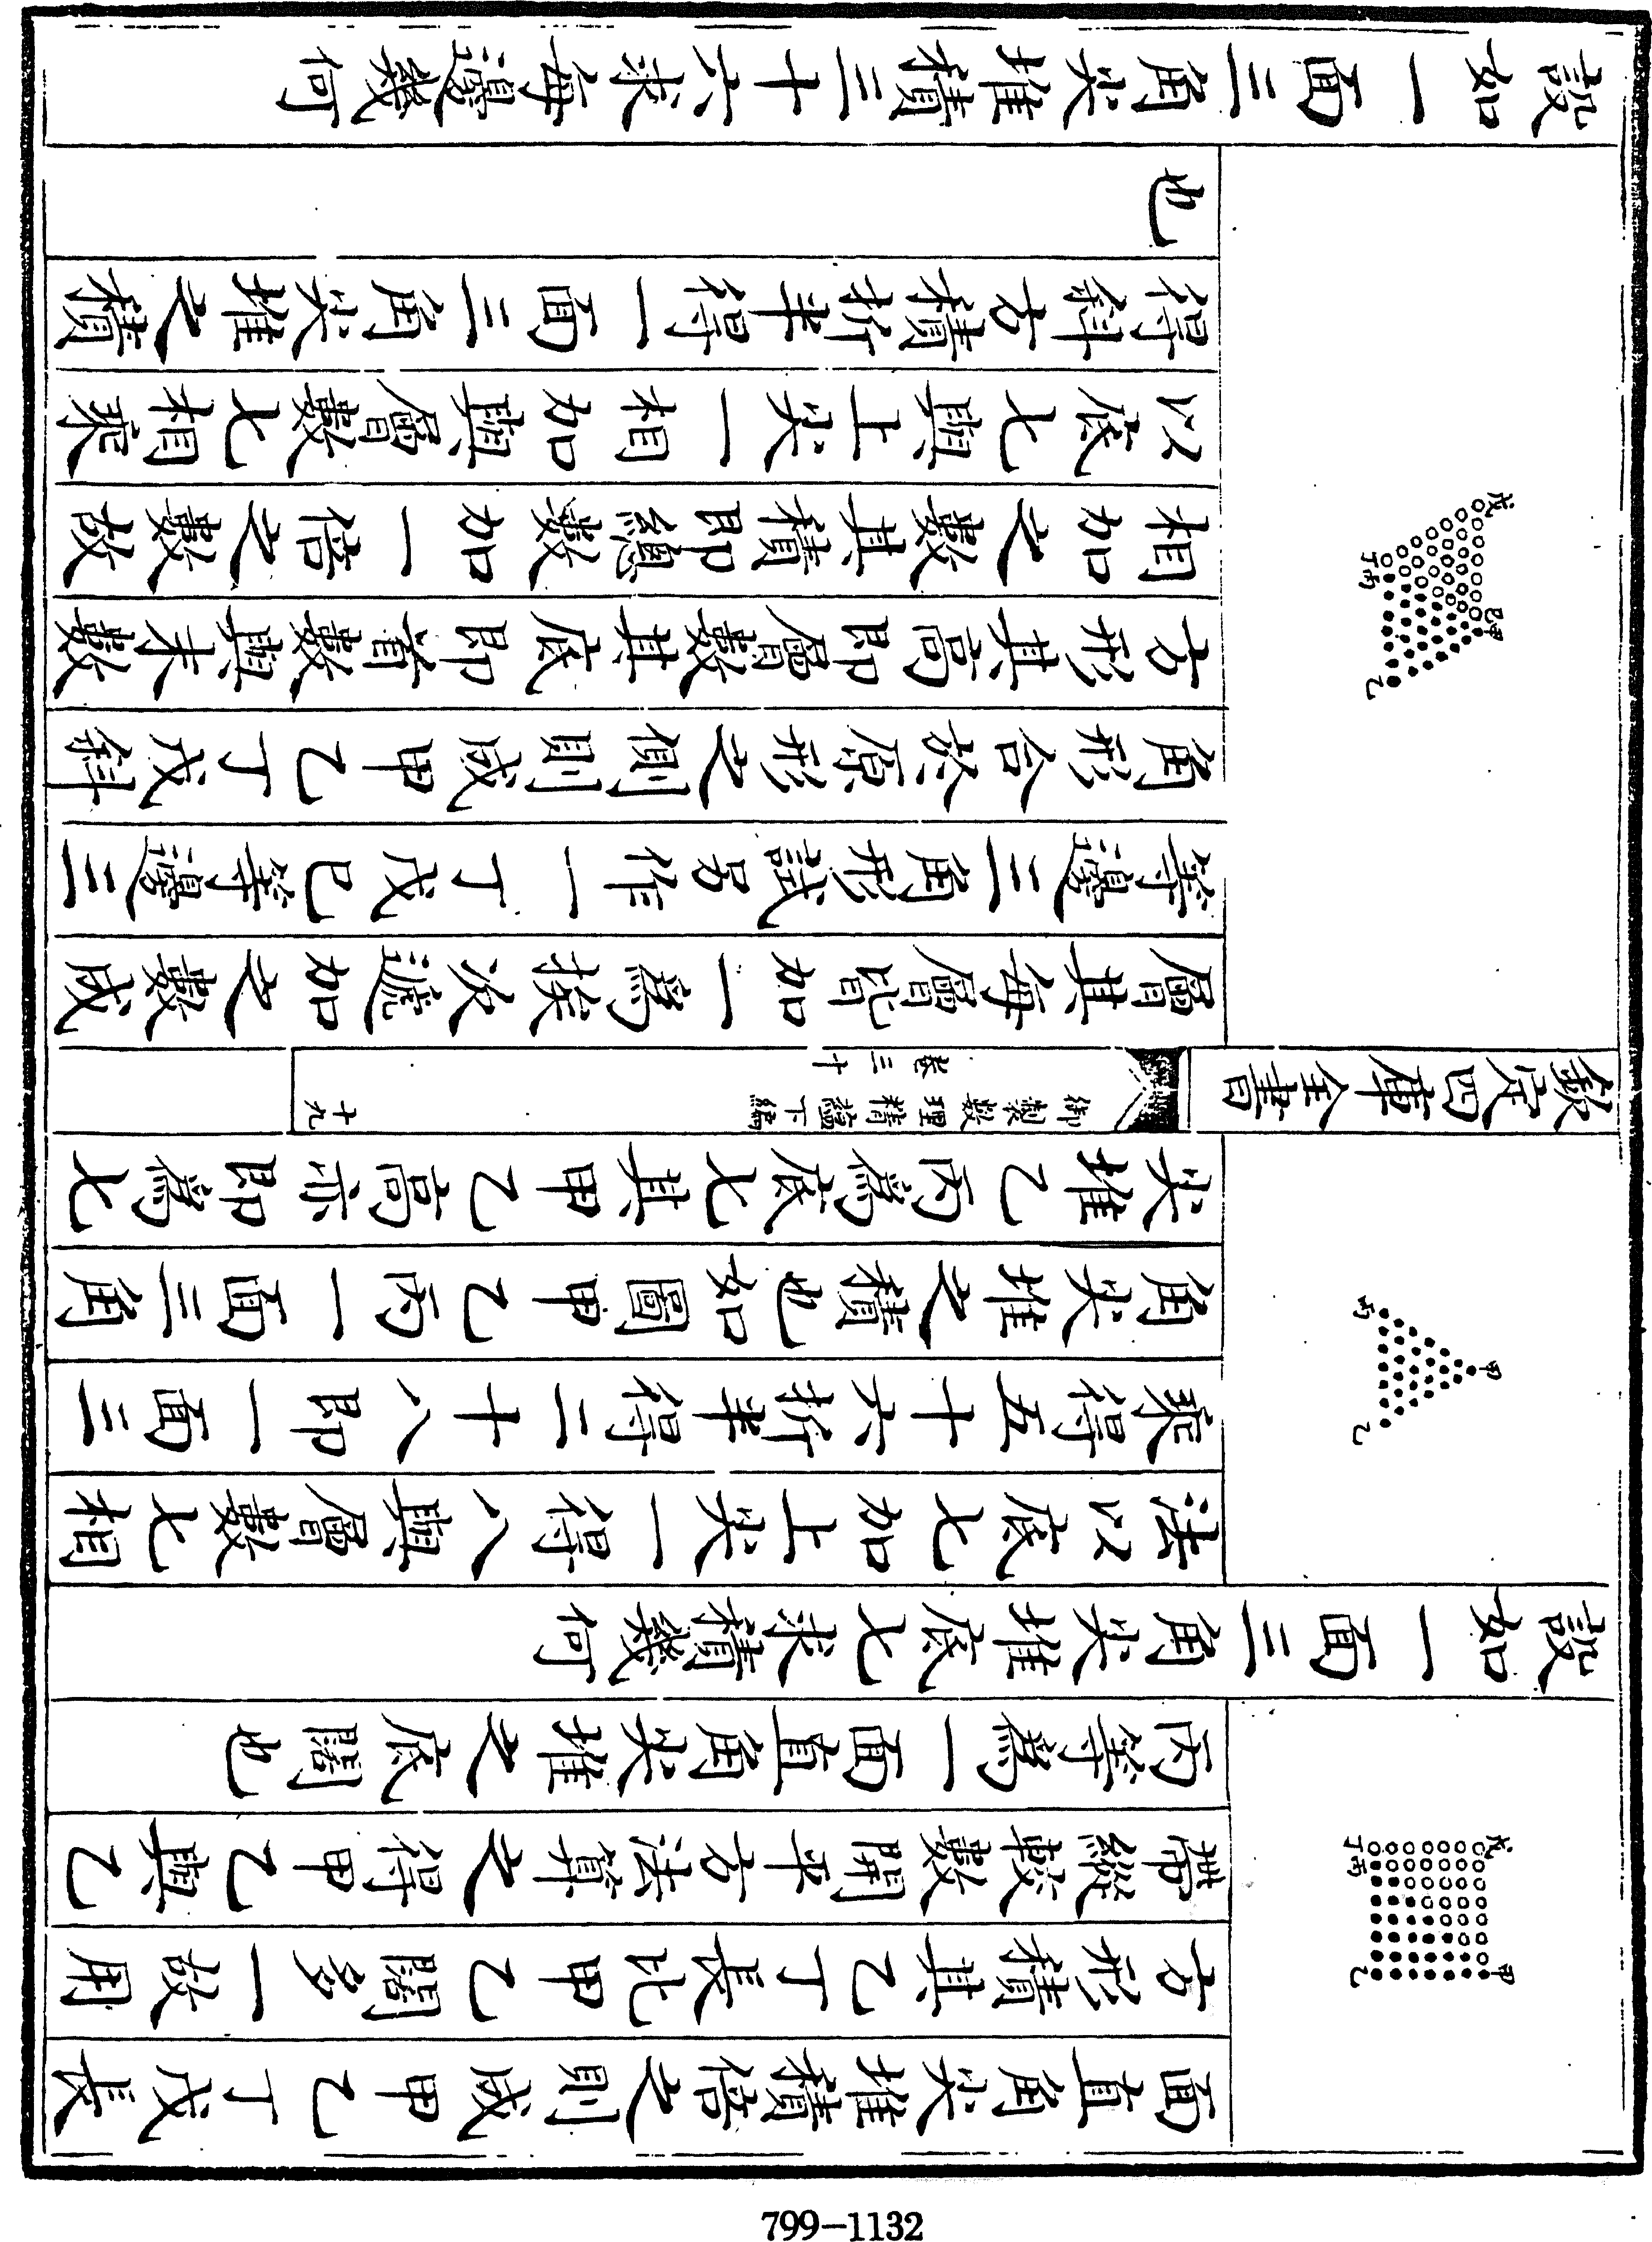 面直角尖堆積倍之則成甲乙丁戊長
方形積其乙丁長比甲乙闊多一故用
帶縱較數開平方法算之得甲乙與乙
丙等爲一面直角尖堆之底闊也
戊
丁丙
甲
乙
設如一面三角尖堆底七求積幾何
法以底七加上尖一得八與層數七相
乘得五十六折半得二十八即一面三
角尖堆之積也如圖甲乙丙一面三角
尖堆乙丙爲底七其甲乙高亦即爲七
甲
丙
乙
欽定四庫全書
御製數理精蘊下編
卷三十
廿九
層其每層皆加一爲挨次遞加之數成
等邊三角形試另作一丁戊巳等邊三
角形合於原形之側則成甲乙丁戊斜
方形其高即層數其底即首數與末數
相加之數其積即總數加一倍之數故
以底七與上尖一相加與層數七相乘
得斜方積折半得一面三角尖堆之積
也
戊
丁丙
巳甲
乙
設如一面三角尖堆積三十六求每邊幾何
799-1132